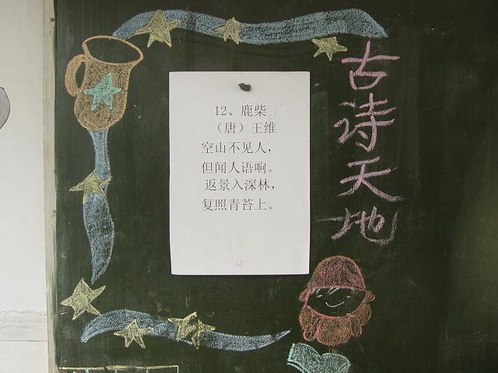 古诗天地
12、鹿柴
（唐）王维
空山不见人，
但闻人语响。
返景入深林，
复照青苔上。